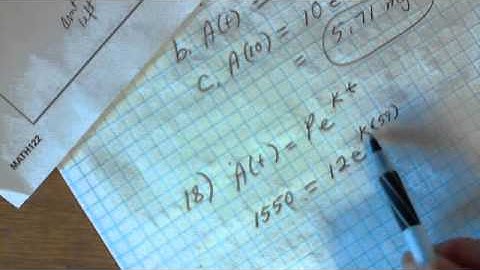 amt
left
MATH122
b. A(t) =
c. A(10) = 10e
= 5.71 mg
18) A(t) = Pe^kt
1550 = 12e^k(59)